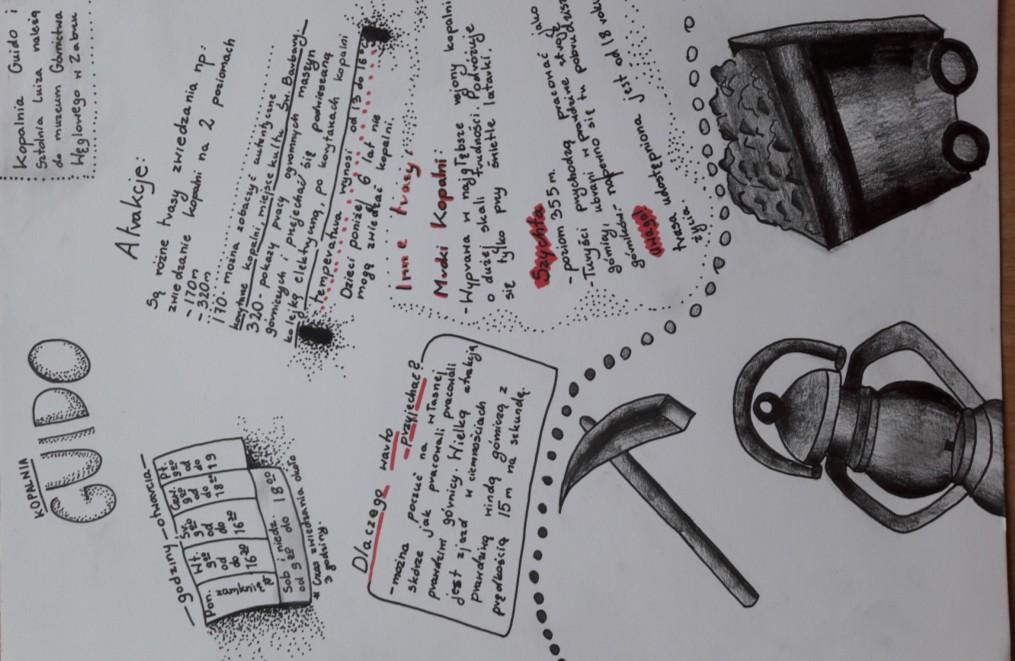 KOPALNIA
GUIDO
Kopalnia Guido i
Sztolnia Luiza należą
do muzeum Górnictwa
Węglowego w Zabrzu
— godziny — otwarcia —
Pon.
zamknięte
Wt.
9:00
od
do
16:30
Śr.
9:00
od
do
16:30
Czw.
9:00
od
do
18:00
Pt.
9:00
od
do
19
Sob i niedz.
od 9:00 do 18:00
* Czas zwiedzania około
3 godziny.
Atrakcje:
Są różne trasy zwiedzania np:
zwiedzanie kopalni na 2 poziomach
-170m
-320m
170- można zobaczyć autentyczne
kopalni, miejsce kultu Św. Barbary
320- pokazy pracy ogromnych maszyn
górniczych i przejechać się podwieszaną
kolejką elektryczną, po korytarzach kopalni
temperatura wynosi od 13 do 16
Dzieci poniżej 6 lat nie
mogą zwiedzać kopalni.
Inne trasy:
Mroki Kopalni:
- Wyprawa w najgłębsze rejony kopalni
o dużej skali trudności Podróżuje
się tylko przy świetle latarki.
Szychta
- poziom 355m.
- Turyści przychodzą pracować jako
górnicy, ubrani w prawdziwe stroje
górników. - naprawdę się tu pobrudzisz
UWAGA!
trasa udostępniona jest od 18 roku
życia.
Dlaczego warto
przyjechać?
- można poczuć na własnej
skórze jak pracowali pracowali
prawdziwi górnicy. Wielką atrakcją
jest zjazd w ciemnościach
prawdziwą windą górniczą z
prędkością 15 m na sekundę.